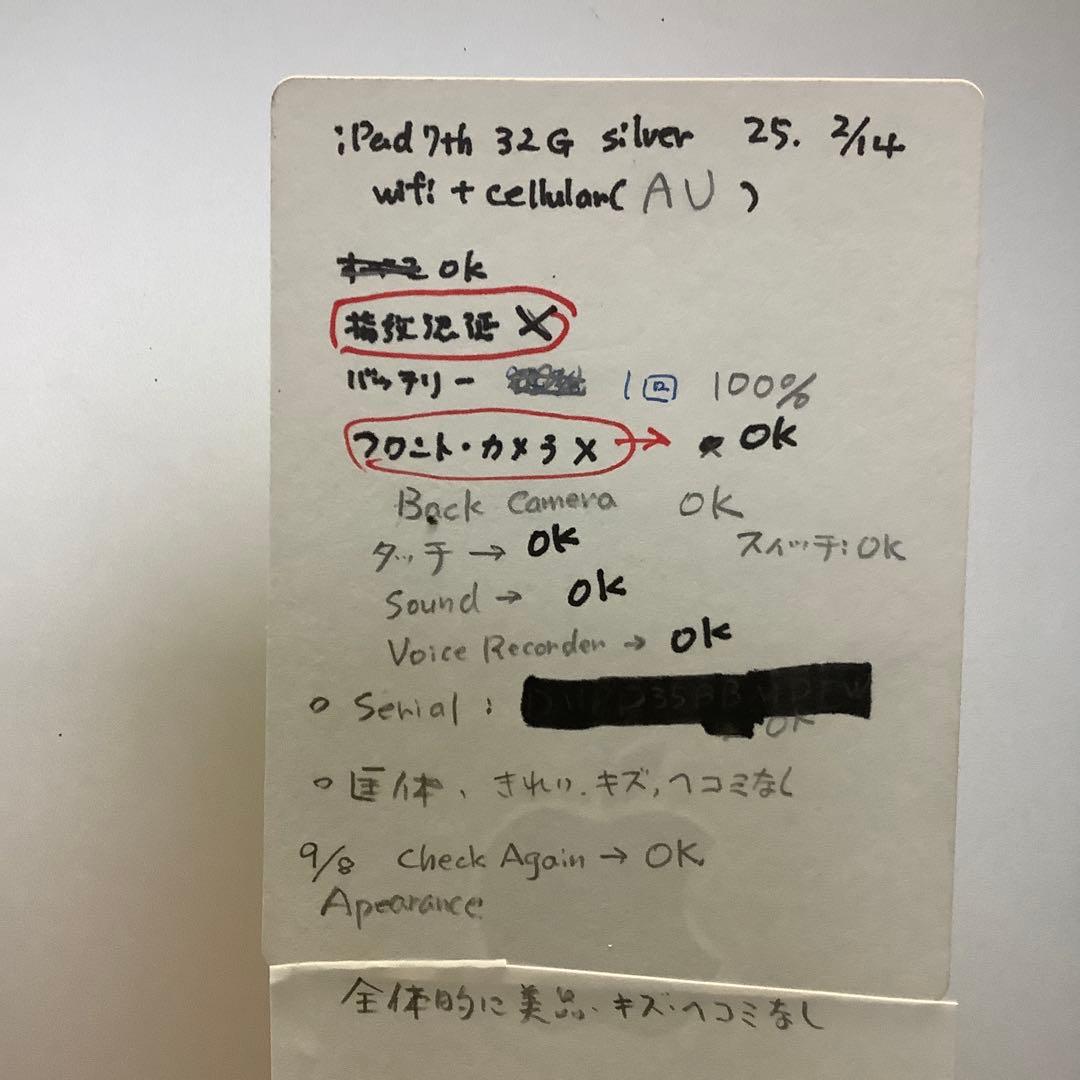 iPad 7th 32G silver 25. 2/14
wifi + cellular( AU )
ok
指紋認証 ×
バッテリー 1回 100%
フロント・カメラ × → OK
Back Camera OK
タッチ → OK スイッチ:OK
Sound → OK
Voice Recorder → OK
○ Serial :
OK
○ 匡体、きれい.キズ,ヘコミなし
9/8 Check Again → OK
Apearance
全体的に美品.キズ.ヘコミなし